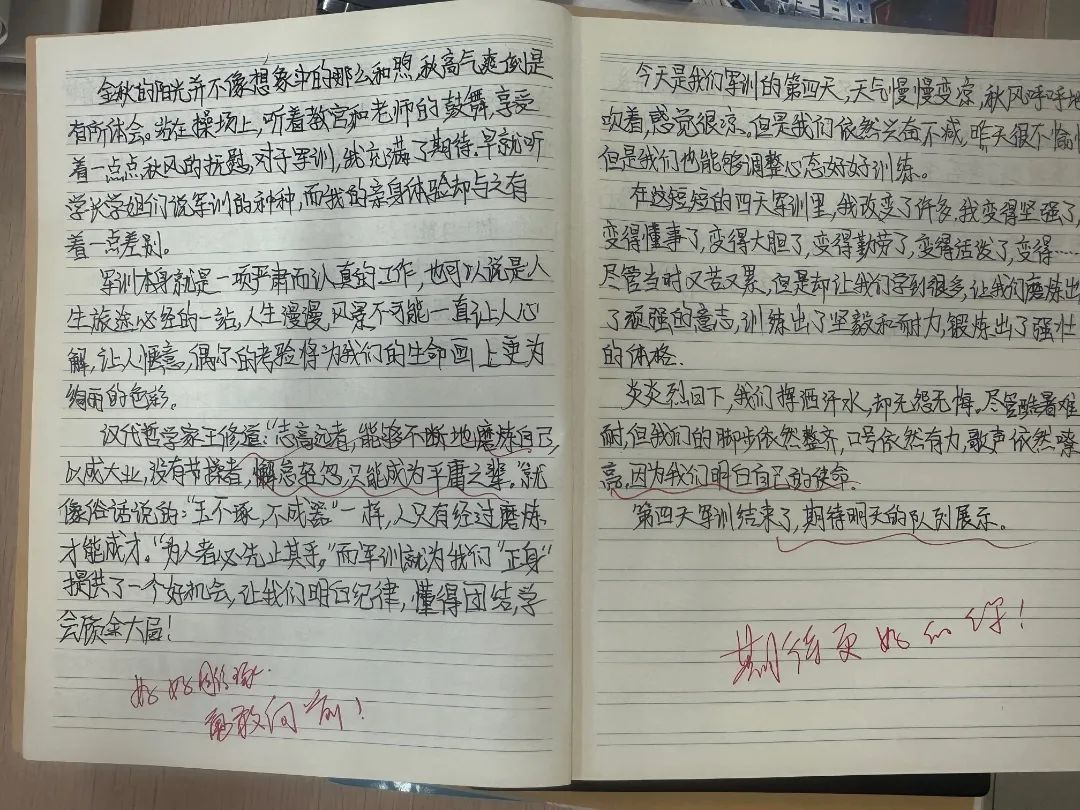 金秋的阳光并不像想象中的那么和煦,秋高气爽倒是
有所体会。站在操场上,听着教官和老师的鼓舞,享受
着一点点秋风的抚慰,对于军训,我充满了期待。早就听
学长学姐们说军训的种种,而我的亲身体验却与之有
着一点差别。
军训本身就是一项严肃而认真的工作,也可以说是人
生旅途必经的一站,人生漫漫,风景不可能一直让人心
解,让人惬意,偶尔的考验将为我们的生命画上更为
绚丽的色彩。
汉代哲学家王修道:“志高远者,能够不断地磨炼自己,
以成大业,没有节操者,懈怠轻忽,只能成为平庸之辈。”就
像俗话说的:“玉不琢,不成器”一样,人只有经过磨炼
才能成才。“为人者必先正其手。”而军训就为我们“正身”
提供了一个好机会,让我们明白纪律,懂得团结,学
会顾全大局!
勇敢向前!
今天是我们军训的第四天,天气慢慢变凉,秋风呼呼地
吹着,感觉很凉。但是我们依然兴奋不减,昨天很不愉
但是我们也能够调整心态好好训练。
在这短短的四天军训里,我改变了许多,我变得坚强了,
变得懂事了,变得大胆了,变得勤劳了,变得活泼了,变得……
尽管当时又苦又累,但是却让我们学到很多,让我们磨炼出
了顽强的意志,训练出了坚毅和耐力,锻炼出了强壮
的体格.
炎炎烈日下,我们挥洒汗水,却无怨无悔。尽管酷暑难
耐,但我们的脚步依然整齐,口号依然有力,歌声依然嘹
亮,因为我们明白自己的使命.
第四天军训结束了,期待明天的队列展示。
期待更好的你!